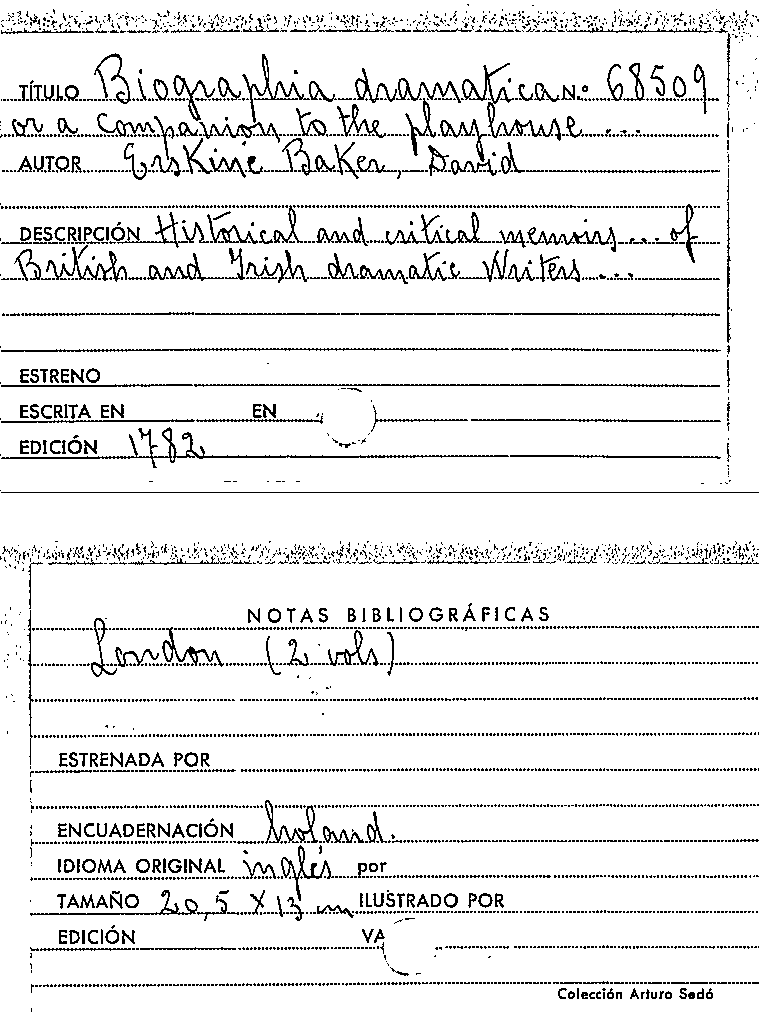 TÍTULO Biographia dramatica N.º 68509
or a companion to the playhouse ...
AUTOR Erskine Baker, David
DESCRIPCIÓN Historical and critical memoirs ... of
British and Irish dramatic Writers ...
ESTRENO
ESCRITA EN EN
EDICIÓN 1782
NOTAS BIBLIOGRÁFICAS
London (2 vols)
ESTRENADA POR
ENCUADERNACIÓN holand.
IDIOMA ORIGINAL inglés por
TAMAÑO 20,5 X 13 cm ILUSTRADO POR
EDICIÓN VA
Colección Arturo Sedó